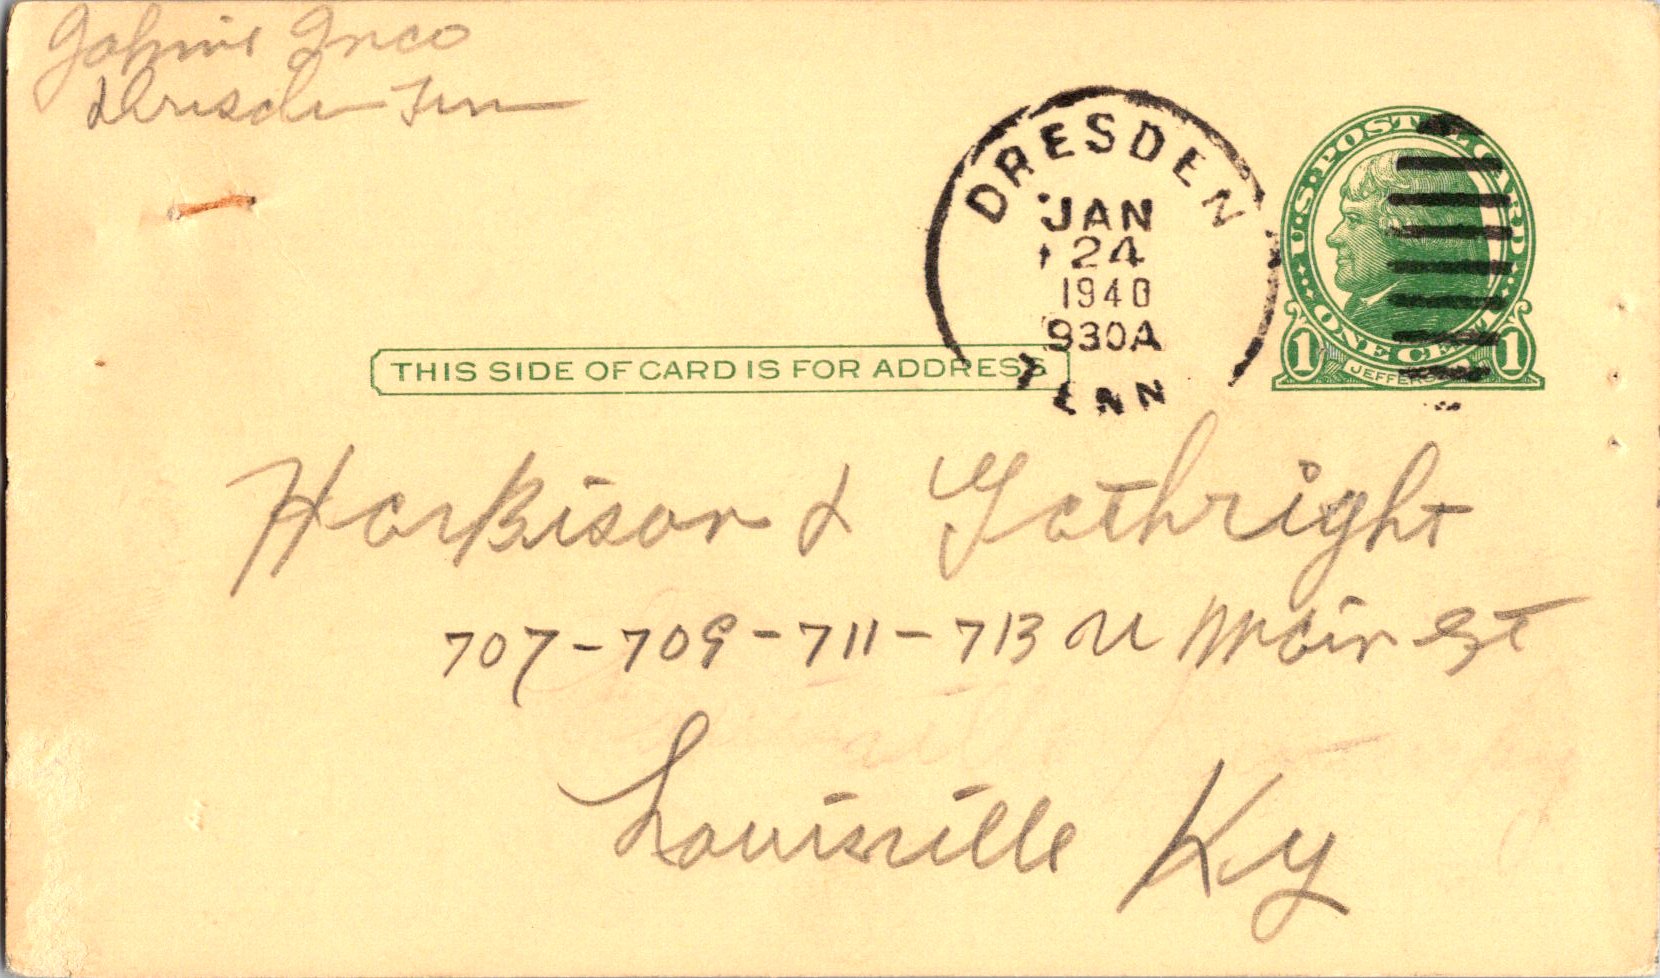 Johnie
Dresden Tenn
DRESDEN
JAN
24
1940
930A
TENN
U.S. POSTAL CARD
ONE CENT
1 JEFFERSON 1
THIS SIDE OF CARD IS FOR ADDRESS
Harbison & Gathright
707-709-711-713 W Main St
Louisville Ky